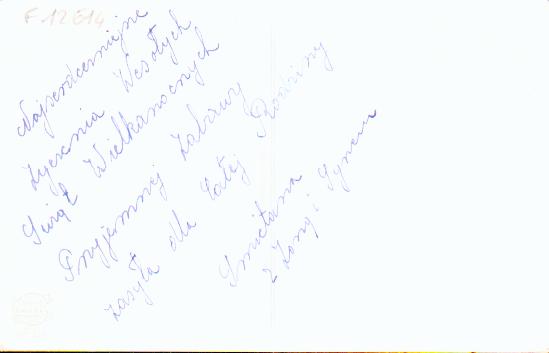 F12614
Najserdeczniejsze
życzenia Wesołych
Świąt Wielkanocnych
Przyjemnej Zabawy
zasyła dla całej Rodziny
Smietana
z Żoną i Synem